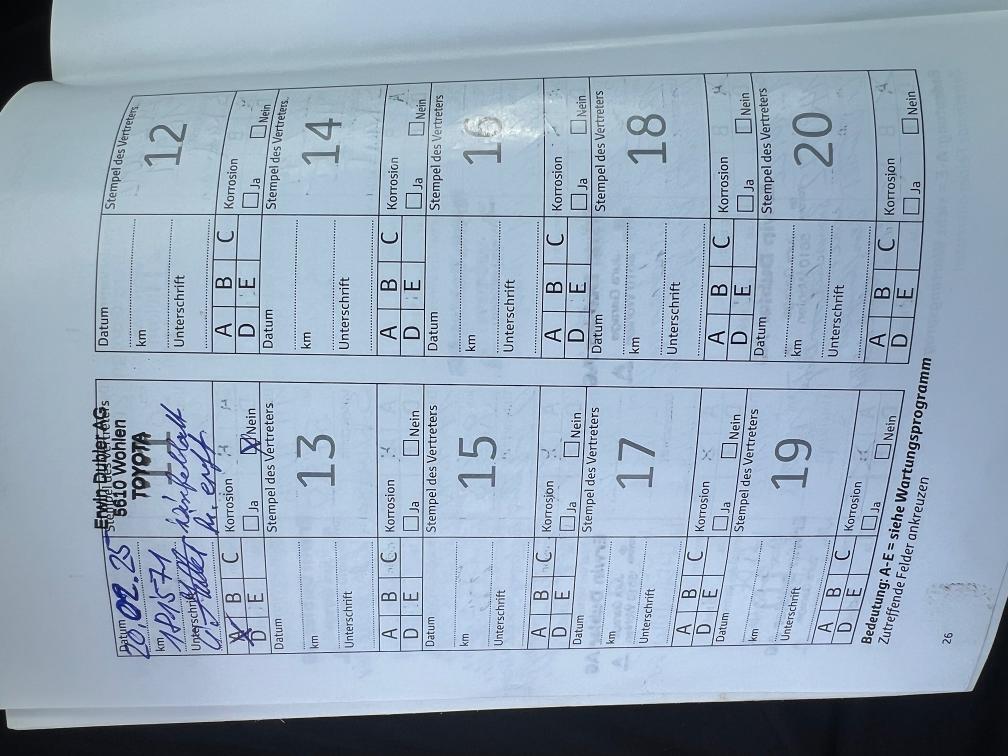 Datum
20.02.25
Erwin Dubler AG
5610 Wohlen
TOYOTA
Stempel des Vertreters
11
km
Unterschrift
A B C
D E
Korrosion
Ja Nein
Datum
km
Unterschrift
Stempel des Vertreters
12
A B C
D E
Korrosion
Ja Nein
Datum
km
Unterschrift
Stempel des Vertreters
13
A B C
D E
Korrosion
Ja Nein
Datum
km
Unterschrift
Stempel des Vertreters
14
A B C
D E
Korrosion
Ja Nein
Datum
km
Unterschrift
Stempel des Vertreters
15
A B C
D E
Korrosion
Ja Nein
Datum
km
Unterschrift
Stempel des Vertreters
16
A B C
D E
Korrosion
Ja Nein
Datum
km
Unterschrift
Stempel des Vertreters
17
A B C
D E
Korrosion
Ja Nein
Datum
km
Unterschrift
Stempel des Vertreters
18
A B C
D E
Korrosion
Ja Nein
Datum
km
Unterschrift
Stempel des Vertreters
19
A B C
D E
Korrosion
Ja Nein
Datum
km
Unterschrift
Stempel des Vertreters
20
A B C
D E
Korrosion
Ja Nein
Bedeutung: A-E = siehe Wartungsprogramm
Zutreffende Felder ankreuzen
26